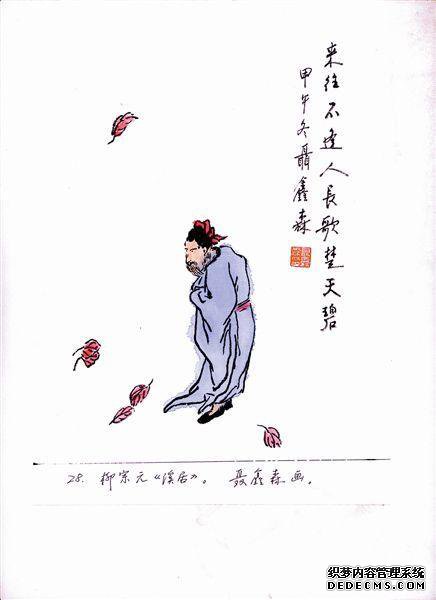 来往不逢人長歌楚天碧
甲午冬聶鑫森
28. 柳宗元《溪居》。 聂鑫森画。
织梦内容管理系统
DEDECMS.COM